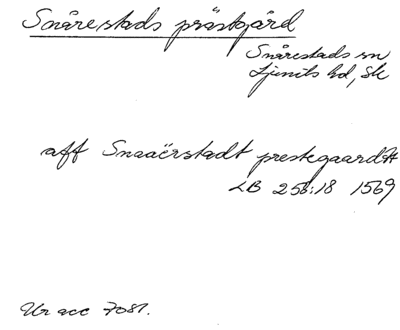 Snårestads prästgård
Snårestads sn
Ljunits hd, Sk
aff Snaaërstadt prestegaardtt
LB 256:18 1569
Ur acc 7081.